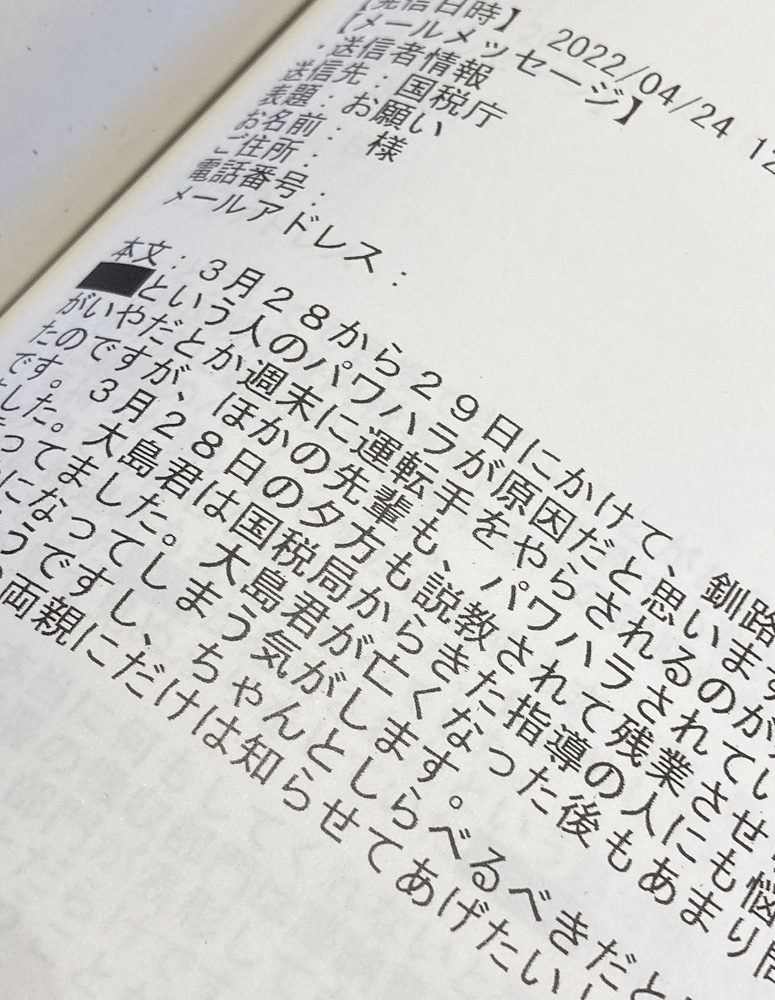 【発信日時】 2022/04/24 12
【メールメッセージ】
・送信者情報
送信先：国税庁
表題：お願い
お名前：　様
ご住所：
電話番号：
メールアドレス：
本文：３月２８から２９日にかけて、釧路
という人のパワハラが原因だと思います
がいやだとか週末に運転手をやらされるのが
たのですが、ほかの先輩も、パワハラされてい
です。３月２８日の夕方も説教されて残業させ
した。大島君は国税局からきた指導の人にも悩
ってました。大島君が亡くなった後もあまり問
になってしまう気がします。
うですし、ちゃんとしらべるべきだと
両親にだけは知らせてあげたい